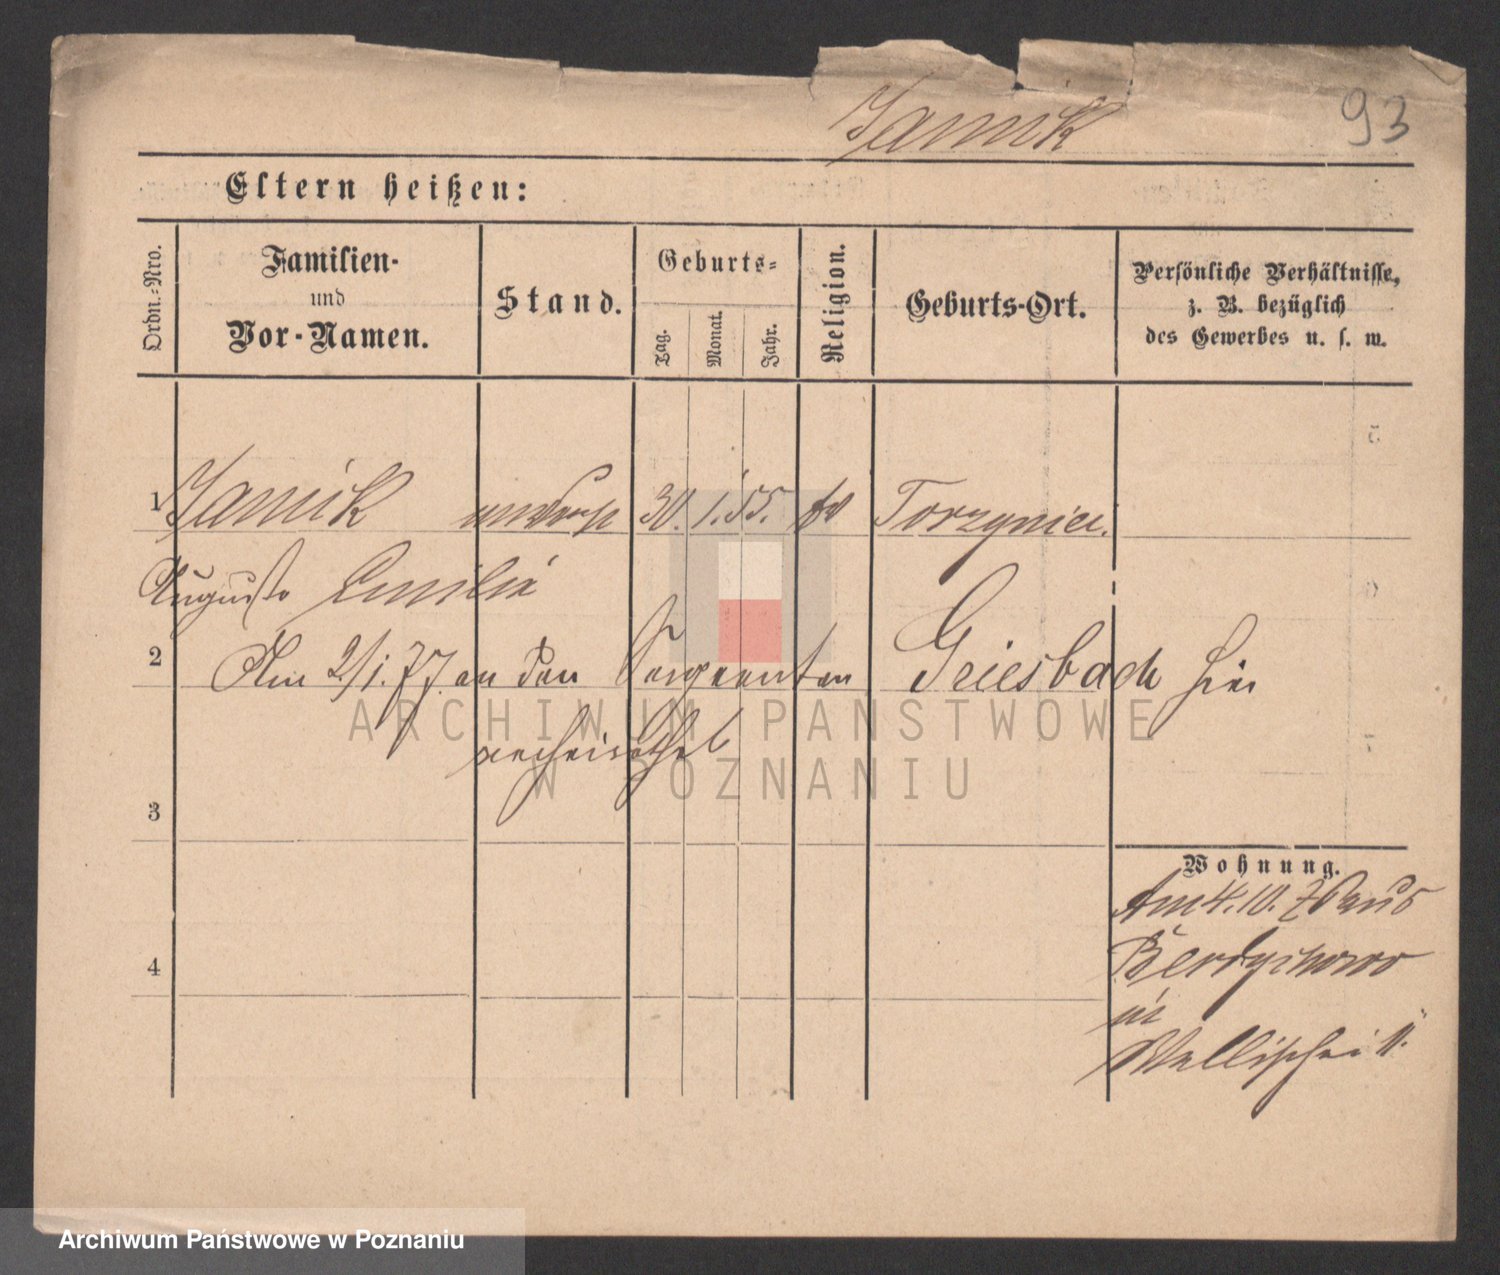 Jannik
93
Eltern heißen:
Ordn.-Nro.
Familien-
und
Vor-Namen.
Stand.
Geburts-
Tag.
Monat.
Jahr.
Religion.
Geburts-Ort.
Persönliche Verhältnisse,
z. B. bezüglich
des Gewerbes u. s. w.
1 Jannik unverh 30. 1. 55. ev Torzyniec.
Auguste Emilie
2 Am 2/1. 77 an den Sergeanten Griesbach hier
verheirathet
3
4
Wohnung.
Am 4. 10. 76 aus
Berdychowo
in
Wallischei
ARCHIWUM PAŃSTWOWE
W POZNANIU
Archiwum Państwowe w Poznaniu